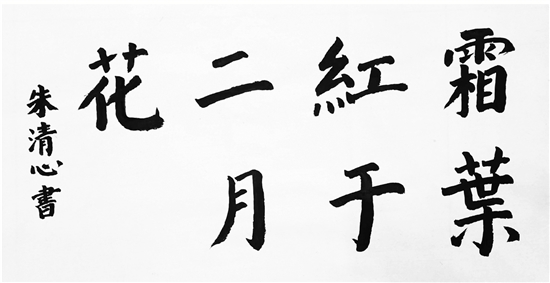 霜葉
紅于
二月
花
朱清心書